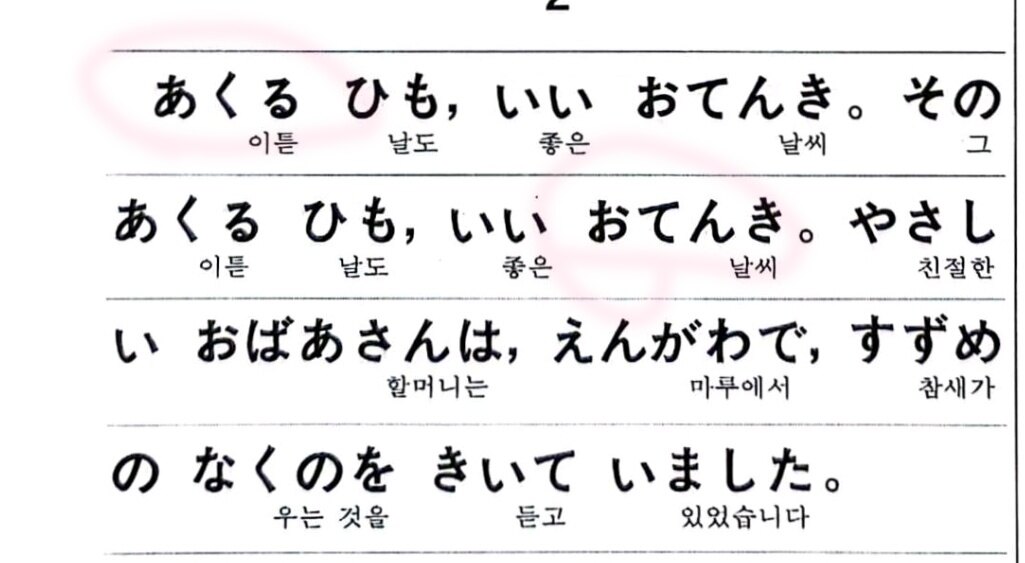 あくる ひも, いい おてんき。その
이튿 날도 좋은 날씨 그
あくる ひも, いい おてんき。やさし
이튿 날도 좋은 날씨 친절한
い おばあさんは, えんがわで, すずめ
할머니는 마루에서 참새가
の なくのを きいて いました。
우는 것을 듣고 있었습니다